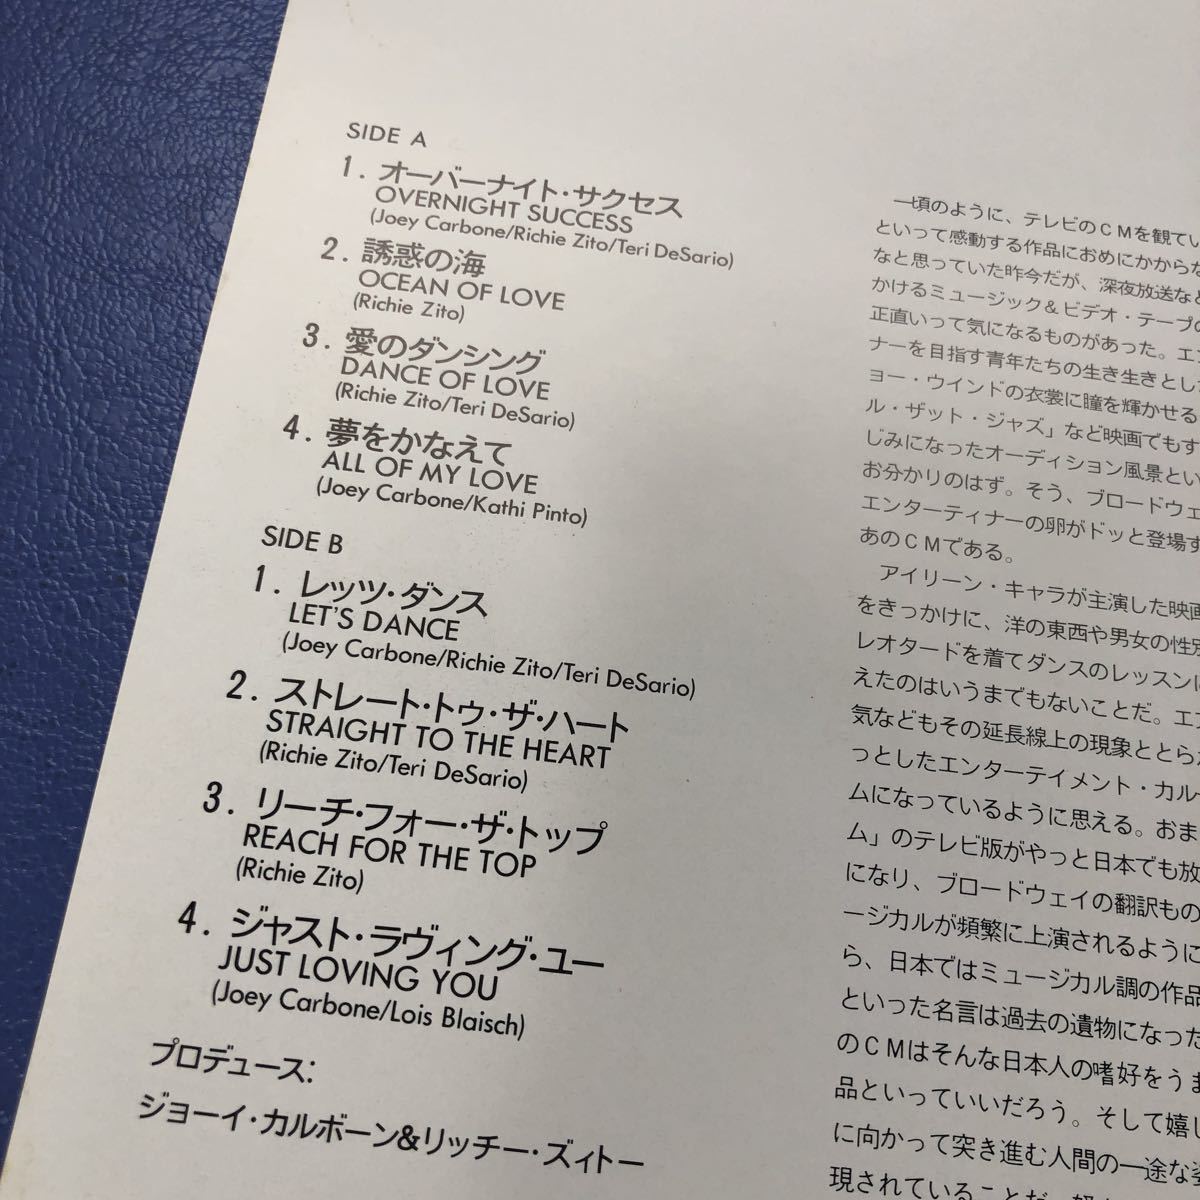 SIDE A
1. オーバーナイト・サクセス
OVERNIGHT SUCCESS
(Joey Carbone/Richie Zito/Teri DeSario)
2. 誘惑の海
OCEAN OF LOVE
(Richie Zito)
3. 愛のダンシング
DANCE OF LOVE
(Richie Zito/Teri DeSario)
4. 夢をかなえて
ALL OF MY LOVE
(Joey Carbone/Kathi Pinto)
SIDE B
1. レッツ・ダンス
LET'S DANCE
(Joey Carbone/Richie Zito/Teri DeSario)
2. ストレート・トゥ・ザ・ハート
STRAIGHT TO THE HEART
(Richie Zito/Teri DeSario)
3. リーチ・フォー・ザ・トップ
REACH FOR THE TOP
(Richie Zito)
4. ジャスト・ラヴィング・ユー
JUST LOVING YOU
(Joey Carbone/Lois Blaisch)
プロデュース:
ジョーイ・カルボーン&リッチー・ズィトー
一頃のように、テレビのCMを観てい
といって感動する作品におめにかからな
なと思っていた昨今だが、深夜放送な
かけるミュージック&ビデオ・テープの
正直いって気になるものがあった。エン
ナーを目指す青年たちの生き生きとし
ョー・ウインドの衣裳に瞳を輝かせる
ル・ザット・ジャズ」など映画でもす
じみになったオーディション風景とい
お分かりのはず。そう、ブロードウェ
エンターティナーの卵がドッと登場す
あのCMである。
アイリーン・キャラが主演した映画
をきっかけに、洋の東西や男女の性別
レオタードを着てダンスのレッスンに
えたのはいうまでもないことだ。エア
気などもその延長線上の現象ととら
っとしたエンターテイメント・カル
ムになっているように思える。おま
ム」のテレビ版がやっと日本でも放
になり、ブロードウェイの翻訳もの
ージカルが頻繁に上演されるように
ら、日本ではミュージカル調の作品
といった名言は過去の遺物になった
のCMはそんな日本人の嗜好をうま
品といっていいだろう。そして嬉し
に向かって突き進む人間の一途な姿
現されていることだ。